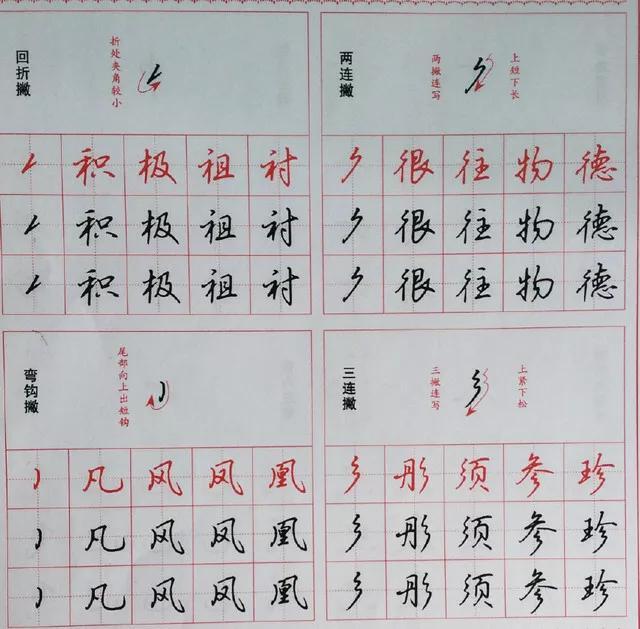 回折撇
折处夹角较小
积极祖衬
积极祖衬
积极祖衬
两连撇
两撇连写
上短下长
很往物德
很往物德
很往物德
弯钩撇
尾部向上出短钩
凡风凤凰
凡风凤凰
凡风凤凰
三连撇
三撇连写
上紧下松
彤须参珍
彤须参珍
彤须参珍